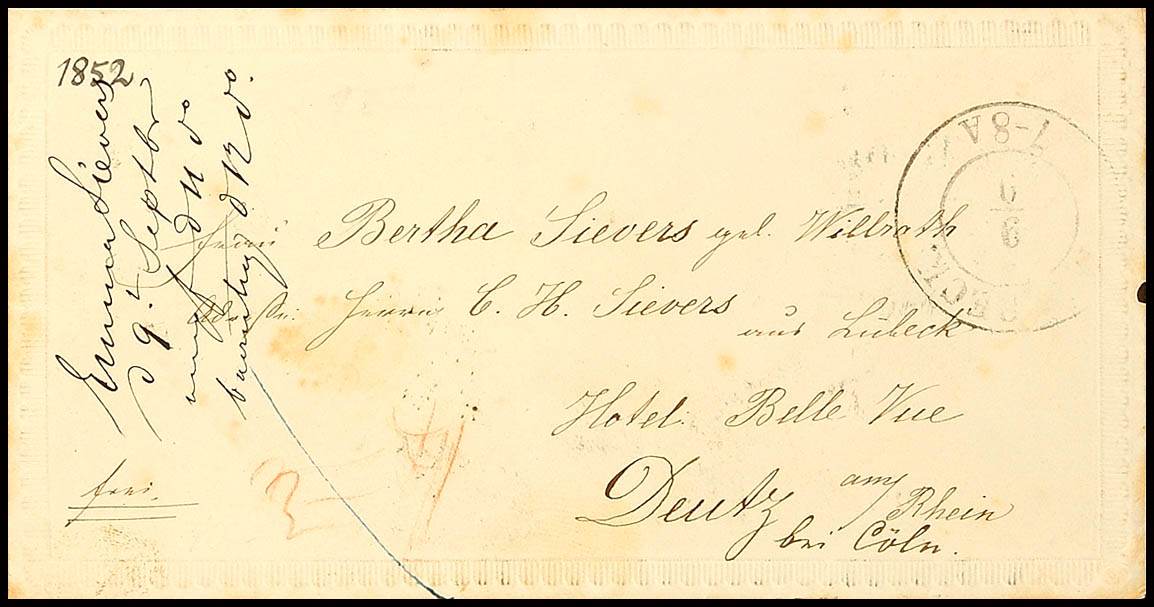 1852
Emma Sievers
d 9t Septbr
empf d 11 do
beantw d 12 do.
7-8A
6
9
Frau Bertha Sievers geb. Willrath
Adresse: Herrn C. H. Sievers
aus Lübeck
Hotel Belle Vue
Deutz am Rhein
bei Cöln.
frei.
3